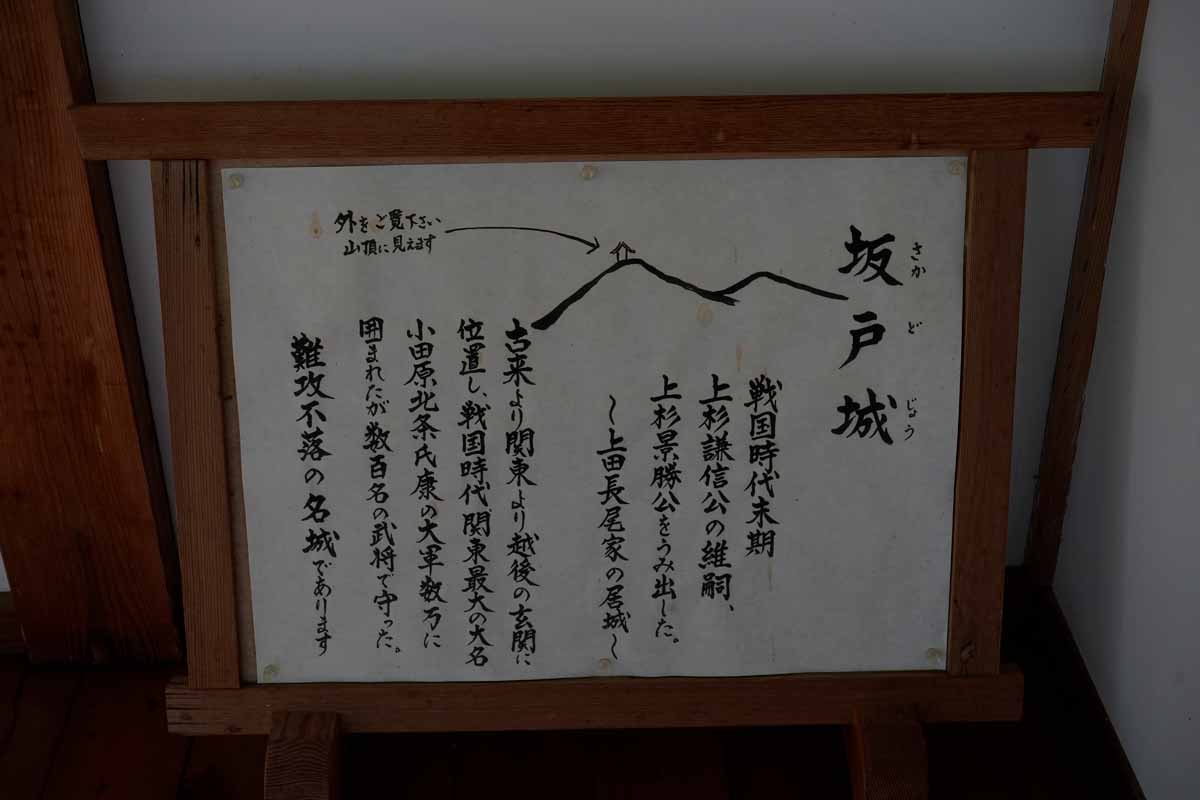 坂戸城
さかどじょう
戦国時代末期
上杉謙信公の維嗣、
上杉景勝公をうみ出した。
〜上田長尾家の居城〜
古来より関東より越後の玄関に
位置し、戦国時代関東最大の大名
小田原北条氏康の大軍数万に
囲まれたが数百名の武将で守った。
難攻不落の名城であります
外をご覧下さい
山頂に見えます